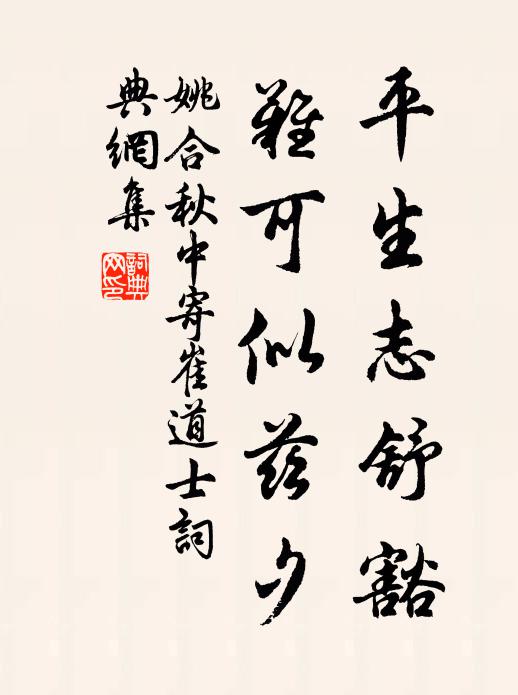 平生志舒豁
難可似茲夕
姚合秋中寄崔道士詞
典網集
詞典
网印